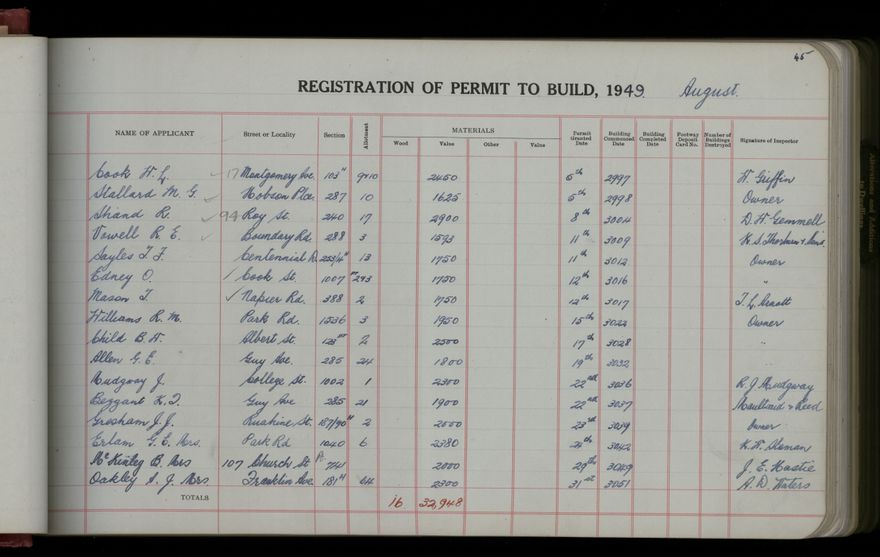 45
REGISTRATION OF PERMIT TO BUILD, 1949. August.
NAME OF APPLICANT Street or Locality Section Allotment MATERIALS Wood Value Other Value Permit Granted Date Building Commenced Date Building Completed Date Footway Deposit Card No. Number of Buildings Destroyed Signature of Inspector
Cook H. L. 17 Montgomery Ave. 9+10 2450 5th 2997 H. Griffin
Stallard M. G. Hobson Place 287 10 1625 5th 2998 Owner
Shand R. 94 Roy St. 240 17 2900 8th 3004 D. H. Gemmell
Vowell R. E. Boundary Rd. 288 3 1593 11th 3009
Sayles T. F. Centennial D 13 1750 11th 3012 Owner
Edney O. Cook St. 1007 293 1750 12th 3016 "
Mason T. Napier Rd. 388 2 1750 12th 3017 T. L. Arnott
Williams R. M. Park Rd. 1536 3 1950 15th 3022 Owner
Child B. H. Albert St. 2 2500 17th 3028 "
Allen G. E. Guy Ave. 285 24 1800 19th 3032 "
Mudgway J. College St. 1002 1 2300 22nd 3036 R. J Mudgway
Beggant K. J. Guy Ave 285 21 1900 22nd 3037 Maultsaid & Reed
Gresham J. J. Ruahine St. 187/90 2 2000 23rd 3039 Owner
Erlam G. E. Mrs. Park Rd 1040 6 2380 3042 K. H. Sloman
McKinley B. Mrs 107 Church St 2000 29th 3049 J. E. Hastie
Oakley A. J. Mrs Franklin Ave. 181 64 2300 31st 3051 A. D. Waters
TOTALS 16 32,948
Alterations and Additions to Dwellings